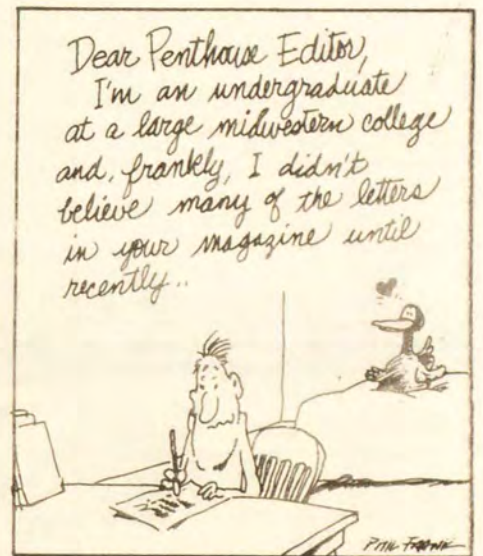 Dear Penthouse Editor,
I'm an undergraduate
at a large midwestern college
and, frankly, I didn't
believe many of the letters
in your magazine until
recently..
PHIL FRANK